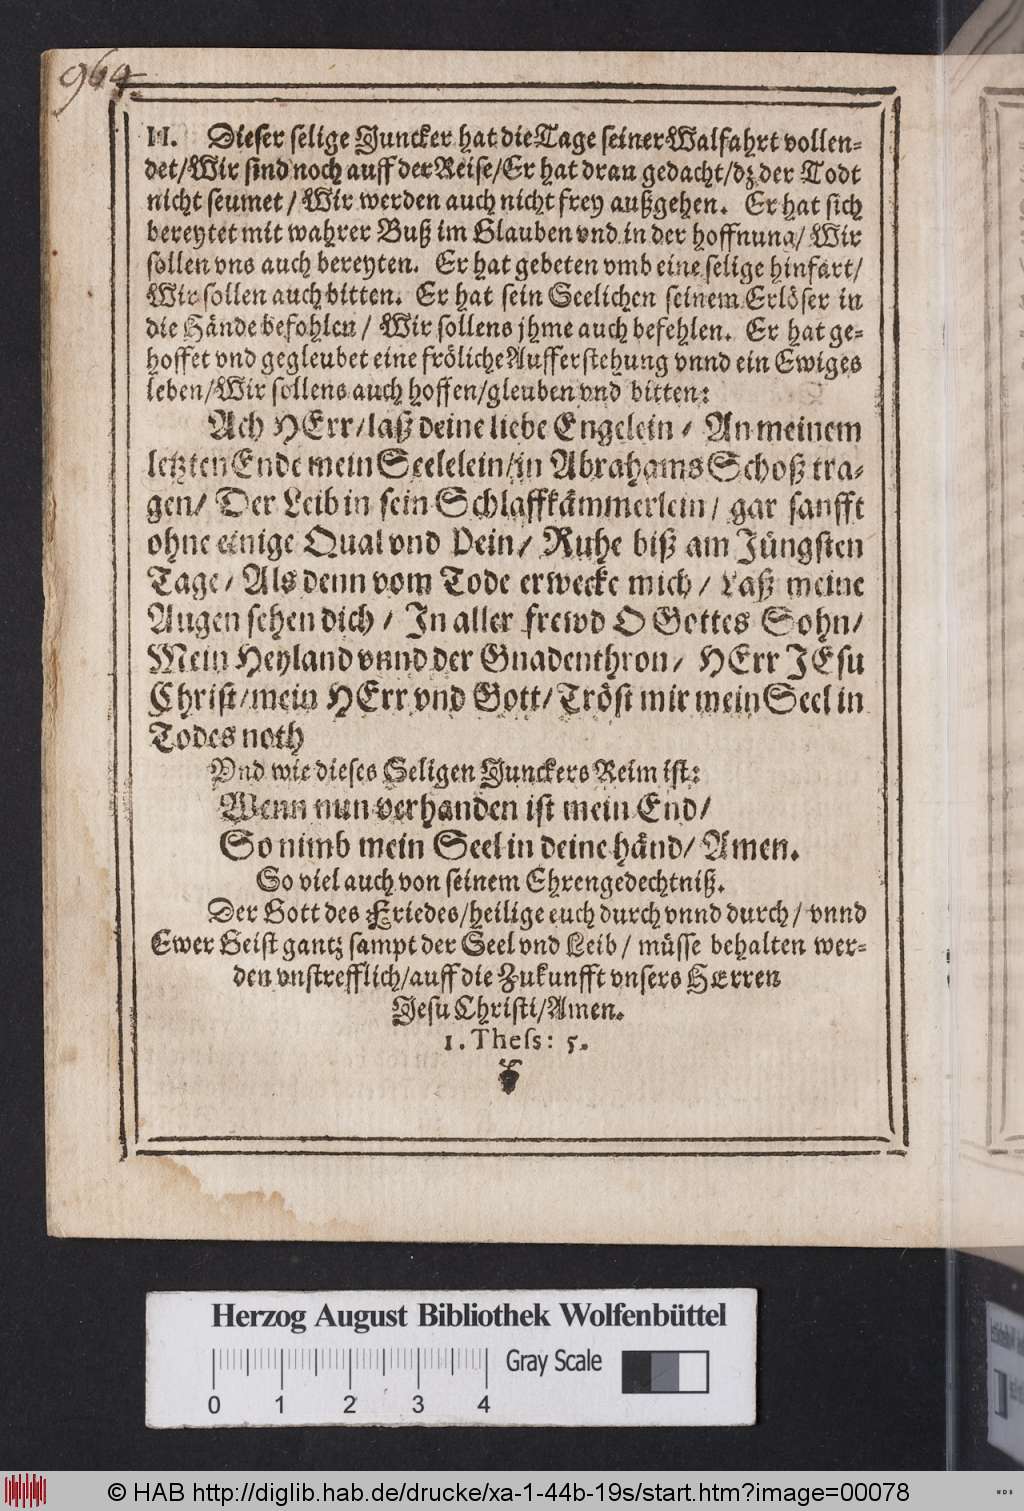 964
II. Dieser selige Juncker hat die Tage seiner Walfahrt vollen-
det/Wir sind noch auff der Reise/Er hat dran gedacht/dz der Todt
nicht seumet/Wir werden auch nicht frey außgehen. Er hat sich
bereytet mit wahrer Buß im Glauben vnd in der hoffnung/Wir
sollen vns auch bereyten. Er hat gebeten vmb eine selige hinfart/
Wir sollen auch bitten. Er hat sein Seelichen seinem Erlöser in
die Hände befohlen/ Wir sollens jhme auch befehlen. Er hat ge-
hoffet vnd gegleubet eine fröliche Aufferstehung vnnd ein Ewiges
leben/Wir sollens auch hoffen/gleuben vnd bitten:
Ach HErr/laß deine liebe Engelein/ An meinem
letzten Ende mein Seelelein/in Abrahams Schoß tra-
gen/ Der Leib in sein Schlaffkämmerlein/ gar sanfft
ohne einige Qual vnd Pein/ Ruhe biß am Jüngsten
Tage/ Als denn vom Tode erwecke mich/ Laß meine
Augen sehen dich/ In aller frewd O Gottes Sohn/
Mein Heyland vnnd der Gnadenthron/ HErr JEsu
Christ/mein HErr vnd Gott/Tröst mir mein Seel in
Todes noth
Vnd wie dieses Seligen Junckers Reim ist:
Wenn nun verhanden ist mein End/
So nimb mein Seel in deine händ/ Amen.
So viel auch von seinem Ehrengedechtniß.
Der Gott des Friedes/heilige euch durch vnnd durch/ vnnd
Ewer Geist gantz sampt der Seel vnd Leib/ müsse behalten wer-
den vnstrefflich/auff die Zukunfft vnsers HErren
Jesu Christi/Amen.
1. Thess: 5.
Herzog August Bibliothek Wolfenbüttel
Gray Scale
0 1 2 3 4
© HAB http://diglib.hab.de/drucke/xa-1-44b-19s/start.htm?image=00078